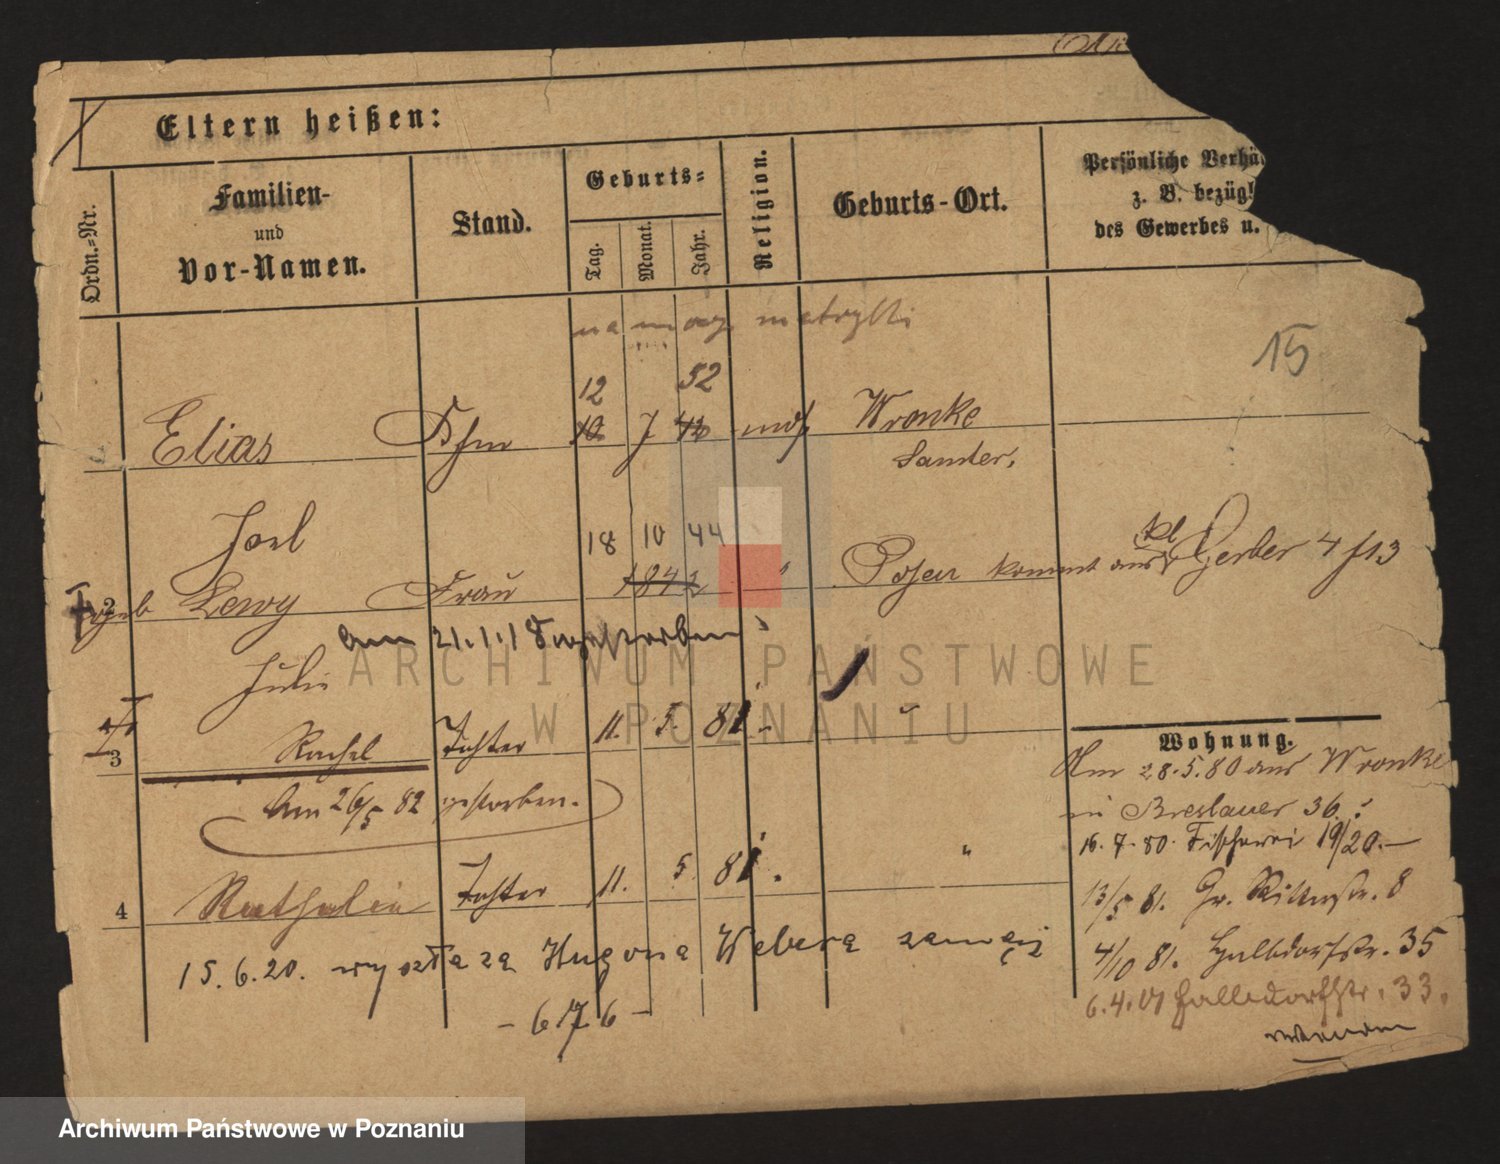 Eltern heißen:
Ordn.-Nr.
Familien-
und
Vor-Namen.
Stand.
Geburts-
Tag.
Monat.
Jahr.
Religion.
Geburts-Ort.
Persönliche Verhä
z. B. bezügl
des Gewerbes u.
15
12 52
Elias Kfm 10 7 42 mos Wronke
Samter.
Joel
18 10 44
2 geb Lewy Frau 1842 " Posen kommt aus kl Gerber 4 f 13
am 21.1.18 gestorben
Julie
3 Rachel Tochter 11. 5. 81.
Am 26/5 82 gestorben.
4 Nathalie Tochter 11. 5. 81. "
15.6.20. wyszła za Hugona Webera zamąż
- 6176 -
Wohnung.
Am 28.5.80 aus Wronke
in Breslauer 36.
16.7.80. Fischerei 19/20.-
13/5 81. Gr. Ritterstr. 8
4/10 81. Halbdorfstr. 35
6.4.01 Halbdorfstr. 33.
wenden
ARCHIWUM PAŃSTWOWE
W POZNANIU
Archiwum Państwowe w Poznaniu